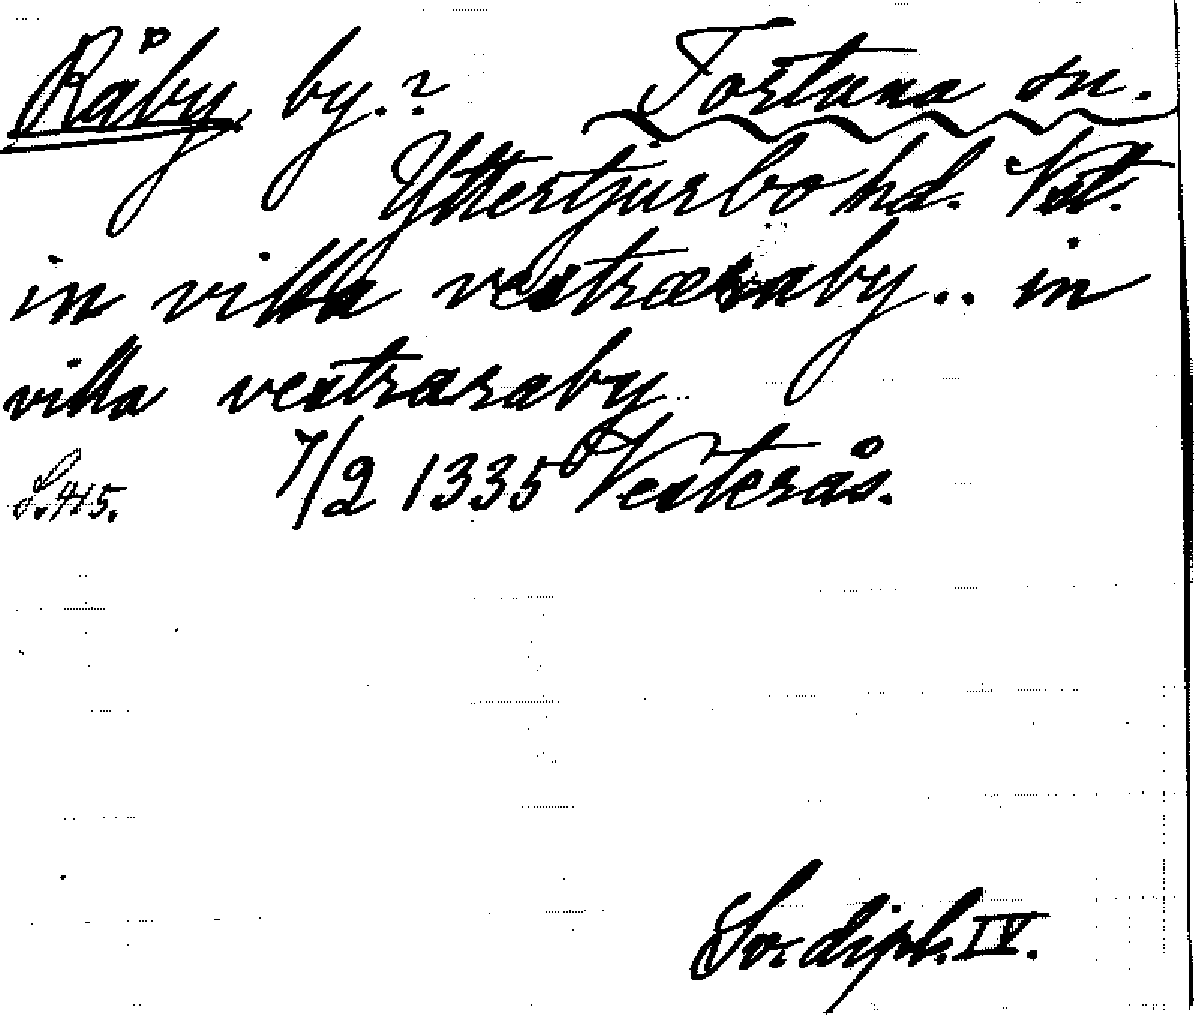 Råby, by.? Tortuna sn.
Yttertjurbo hd. Vstl.
in villa vestræraby.. in
villa vestraraby
S. 415. 7/2 1335 Vesterås.
Sv. dipl. IV.